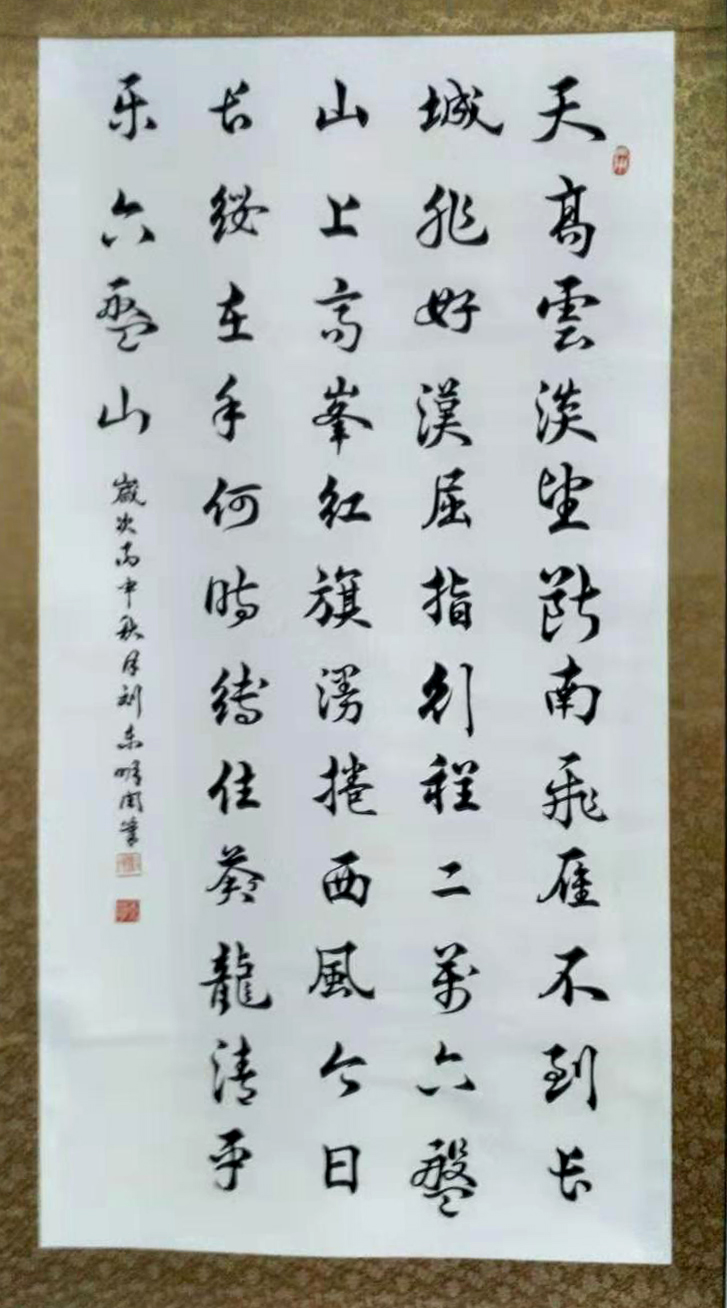 天高雲淡望斷南飛雁不到长
城非好漢屈指行程二萬六盤
山上高峯紅旗漫捲西風今日
长纓在手何時縛住蒼龍清平
乐六盤山
歲次丙申秋月刘东